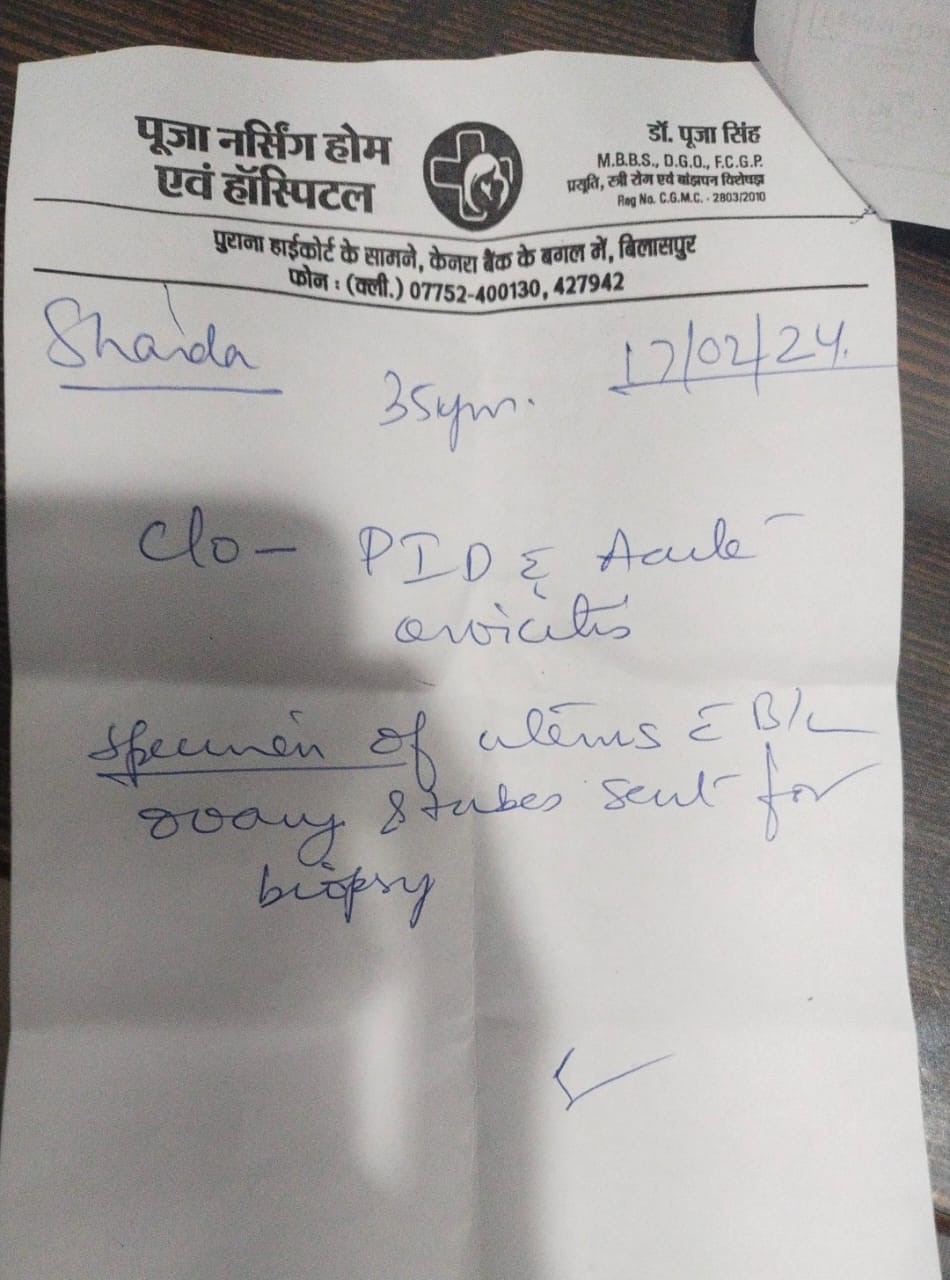 पूजा नर्सिंग होम
एवं हॉस्पिटल
डॉ. पूजा सिंह
M.B.B.S., D.G.O., F.C.G.P.
प्रसूति, स्त्री रोग एवं बांझपन विशेषज्ञ
Reg No. C.G.M.C. - 2803/2010
पुराना हाईकोर्ट के सामने, केनरा बैंक के बगल में, बिलासपुर
फोन : (क्ली.) 07752-400130, 427942
17/02/24.
35
C/o - PID c̄ Acute
cervicitis
specimen of uterus c̄ B/L
ovary & tubes sent for
biopsy